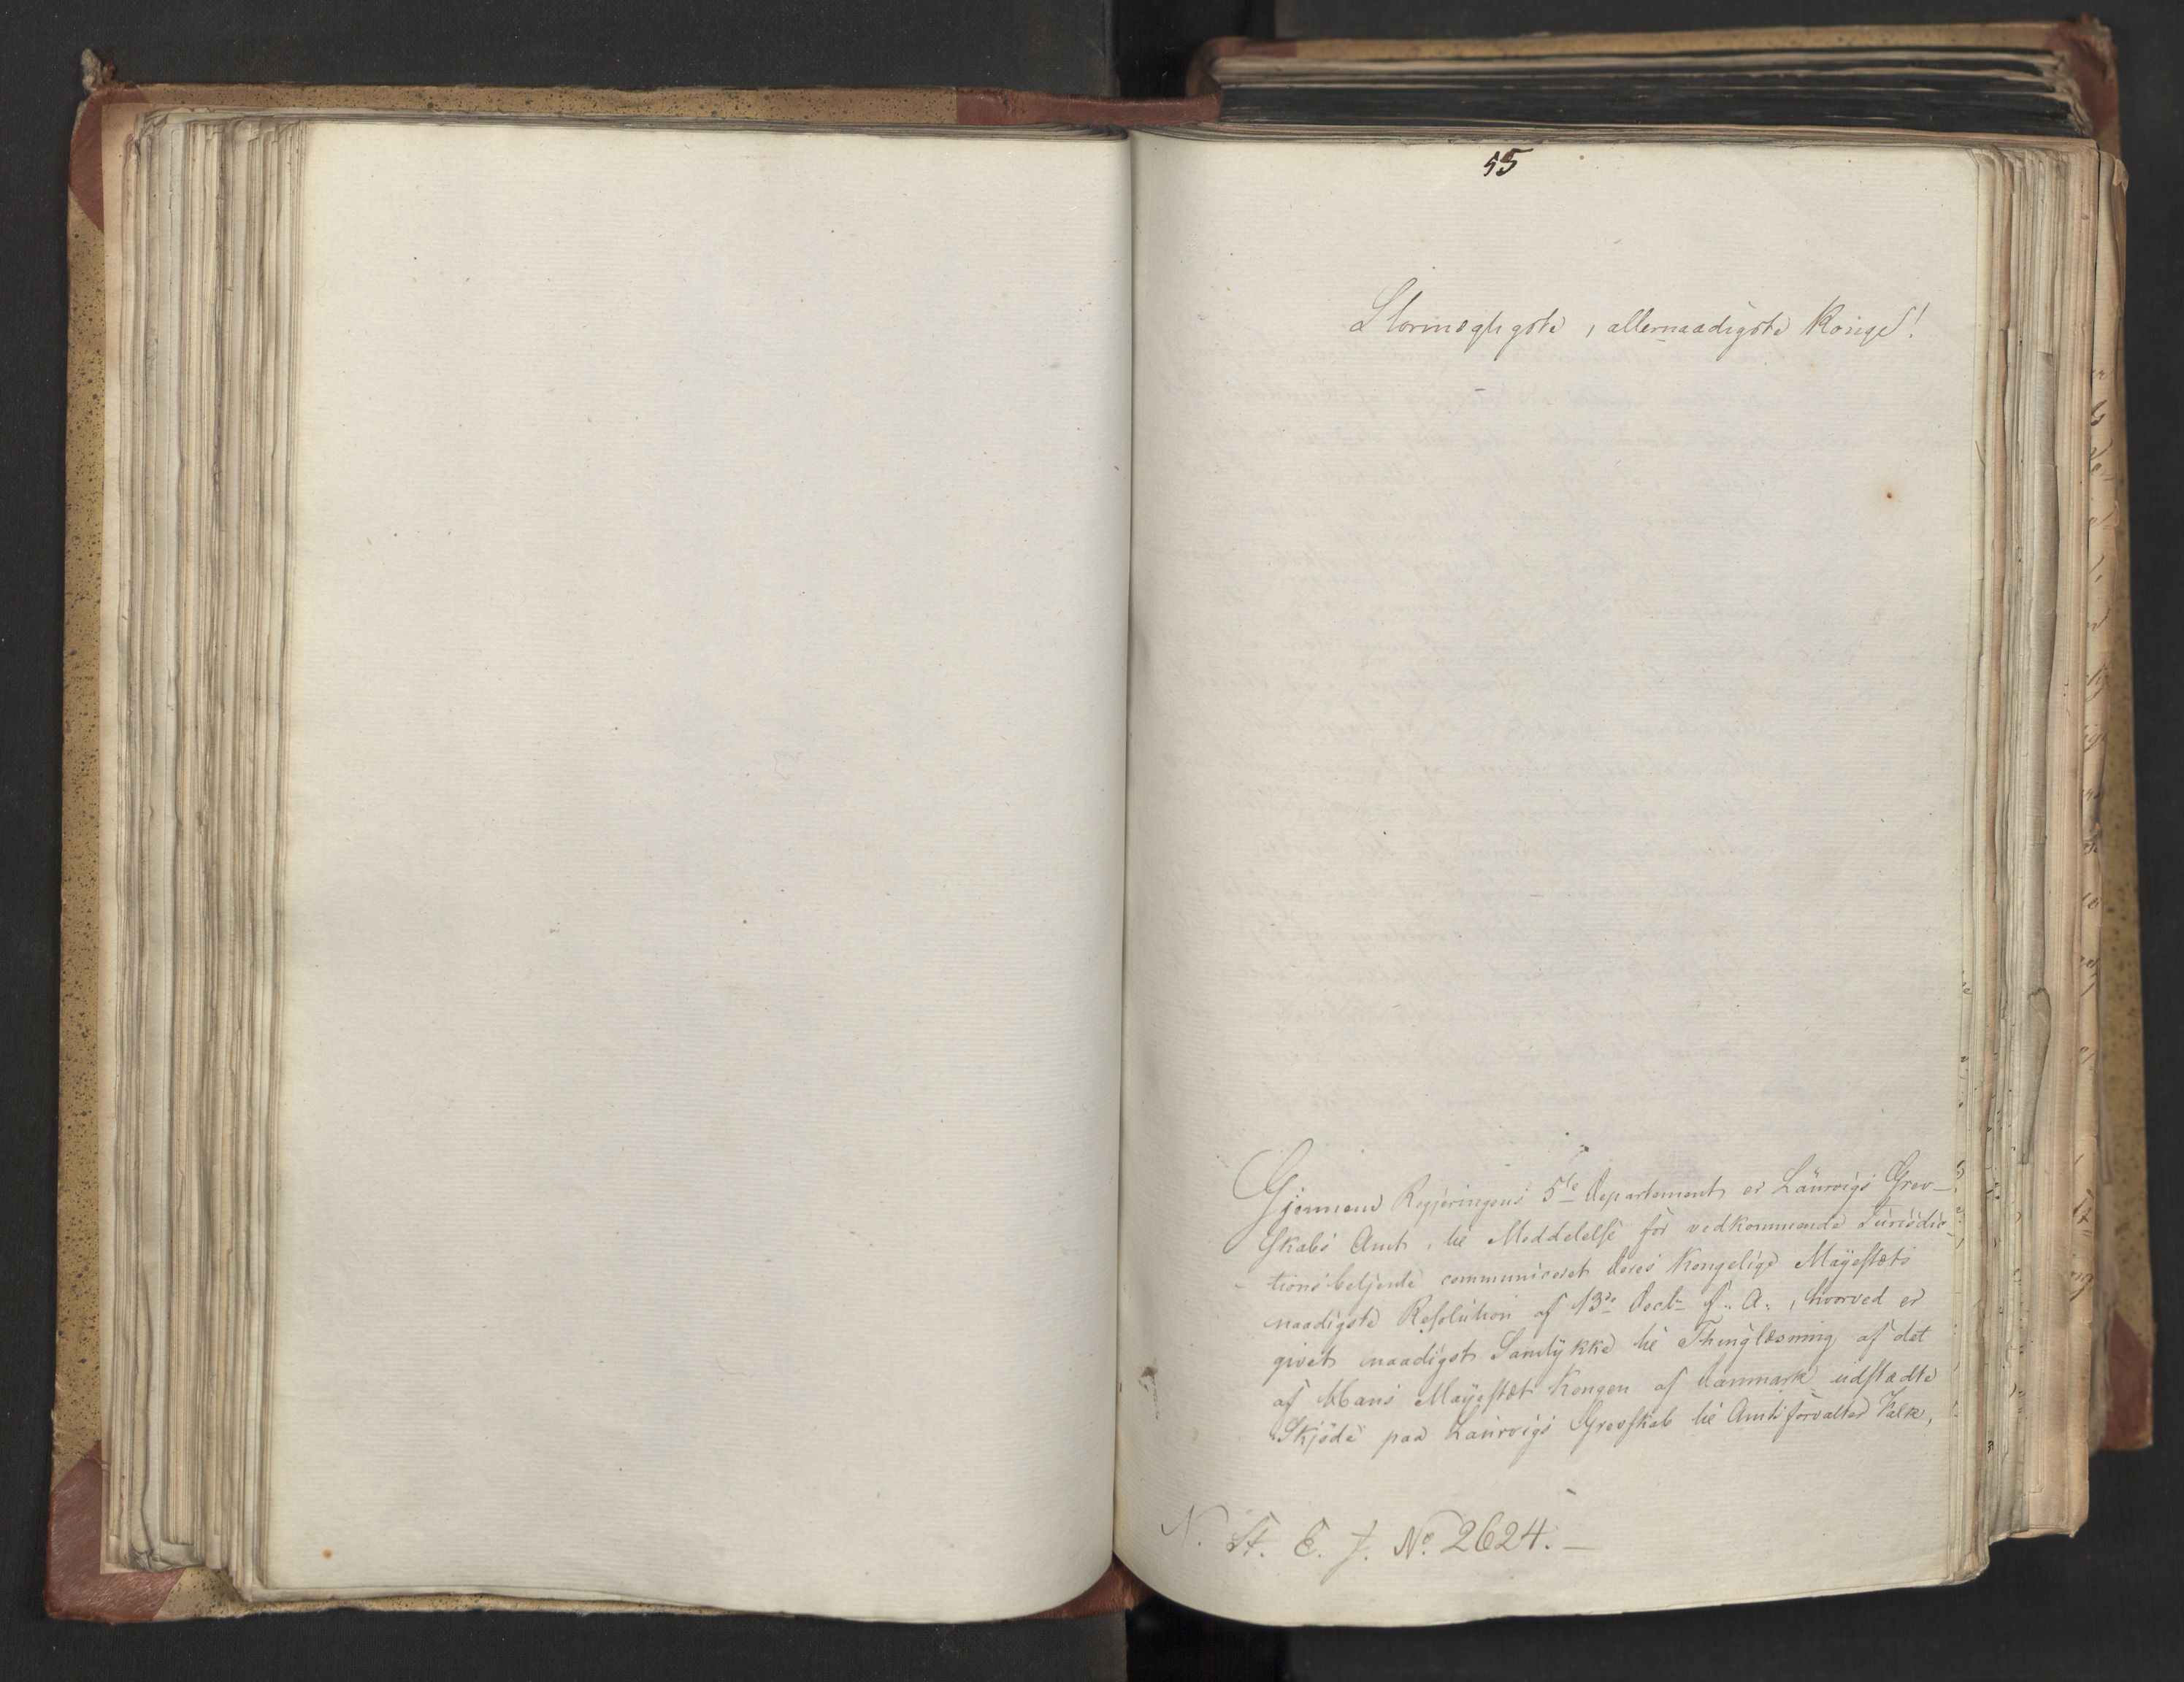 55
Stormægtigste, allernaadigste Konge!
Gjennem Regjeringens 5te Departement er Laurvigs Grev-
skabs Amt, til Meddelelse for vedkommende Jurisdic-
tionsbetjente communiceret Deres Kongelige Mayestæts
naadigste Resolution af 13de Decbr f. A., hvorved er
givet naadigst Samtykke til Thinglæsning af det
af Hans Mayestæt Kongen af Danmark udstædte
Skjöde paa Laurvigs Grevskab til Amtsforvalter Falk,
N. St. E. J. No. 2624.